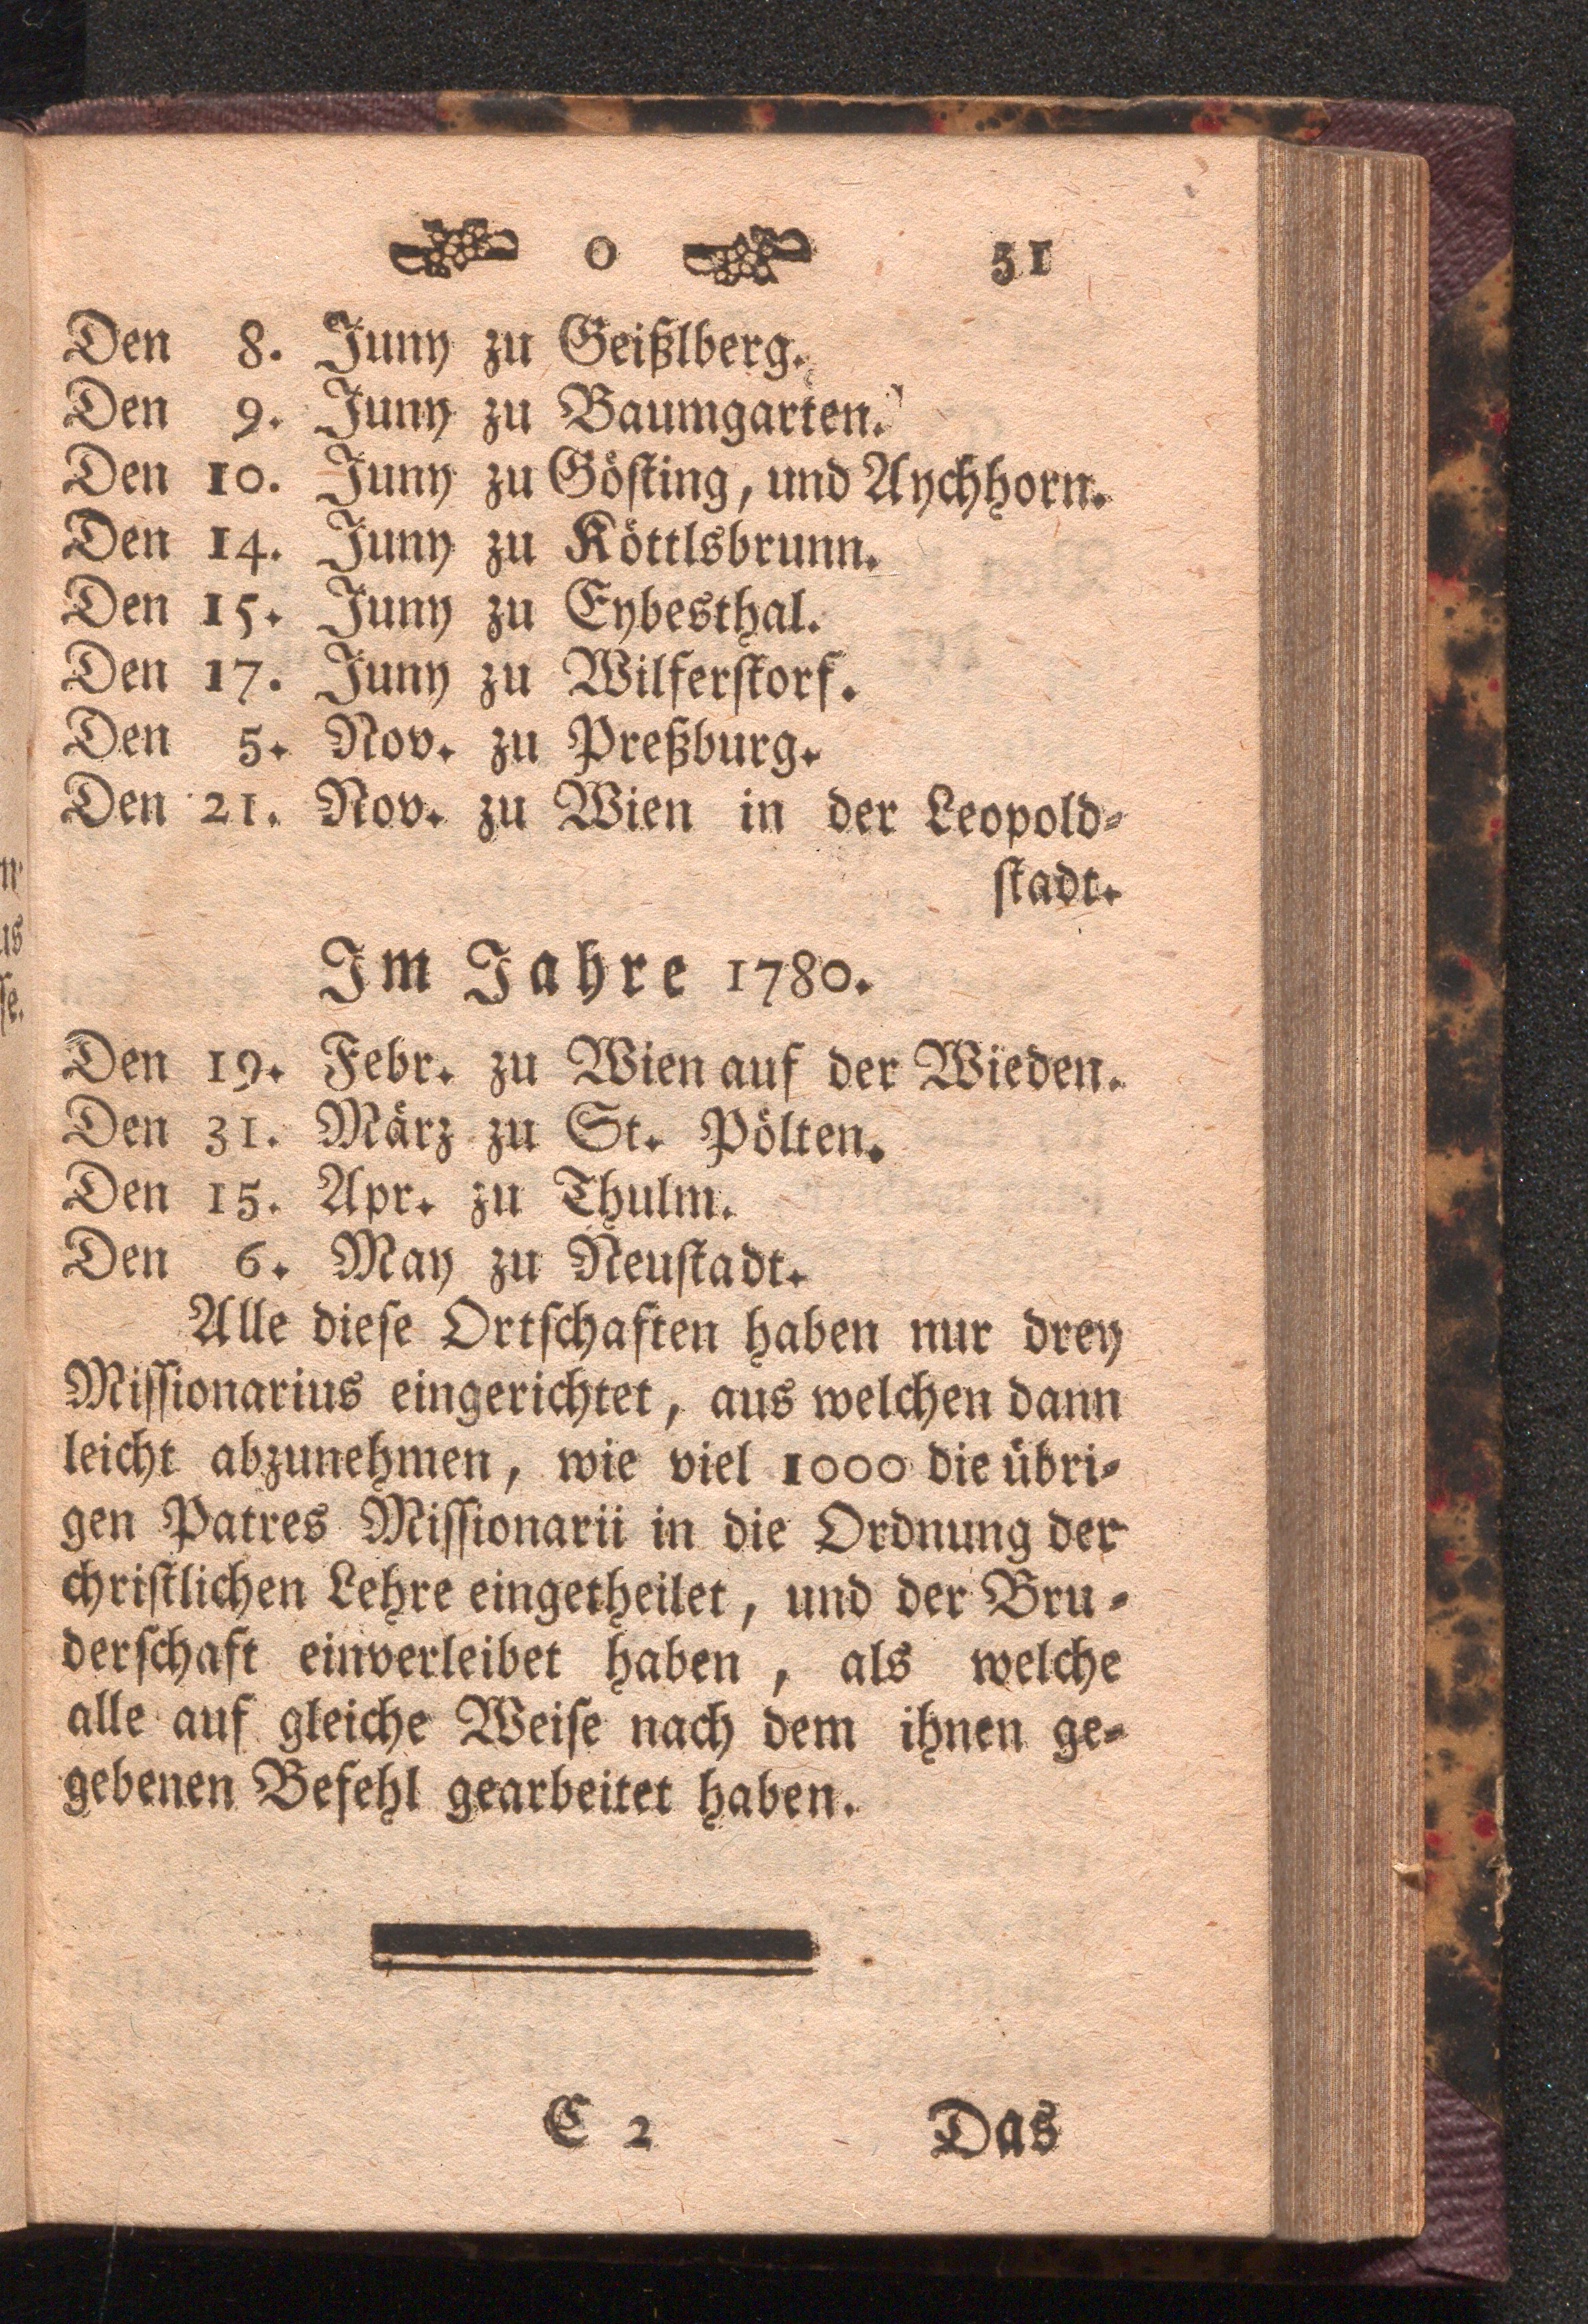 0 51
Den 8. Juny zu Geißlberg.
Den 9. Juny zu Baumgarten.
Den 10. Juny zu Gösting, und Aychhorn.
Den 14. Juny zu Köttlsbrunn.
Den 15. Juny zu Eybesthal.
Den 17. Juny zu Wilferstorf.
Den 5. Nov. zu Preßburg.
Den 21. Nov. zu Wien in der Leopold-
stadt.
Im Jahre 1780.
Den 19. Febr. zu Wien auf der Wieden.
Den 31. März zu St. Pölten.
Den 15. Apr. zu Thulm.
Den 6. May zu Neustadt.
Alle diese Ortschaften haben nur drey
Missionarius eingerichtet, aus welchen dann
leicht abzunehmen, wie viel 1000 die übri-
gen Patres Missionarii in die Ordnung der
christlichen Lehre eingetheilet, und der Bru-
derschaft einverleibet haben, als welche
alle auf gleiche Weise nach dem ihnen ge-
gebenen Befehl gearbeitet haben.
E 2 Das